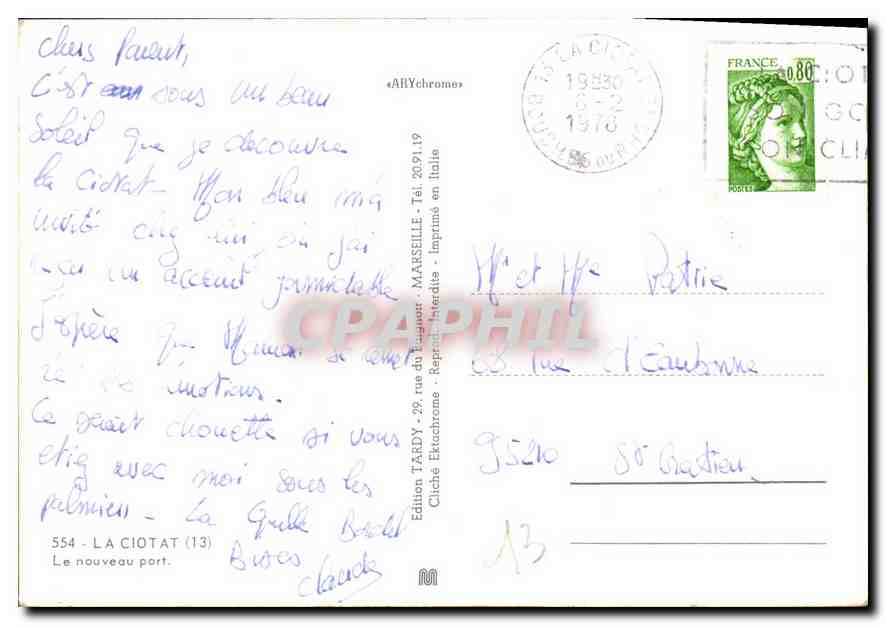 Chers Parent,
C'est sous un beau
Soleil que je decouvre
la Ciotat - Mon bleu m'a
invité chez lui, où j'ai
reçu un accueil formidable
J'espère que Maman se remet
de émotions.
Ce serait chouette si vous
etiez avec moi sous les
palmiers - La Quille Bordel
Bises
Claude
554 - LA CIOTAT (13)
Le nouveau port.
«ARYchrome»
Edition TARDY - 29, rue du - MARSEILLE - Tél. 20.91.19
Cliché Ektachrome - Reprod. Interdite - Imprimé en Italie
13 LA CIOTAT
19H30
6-2
1978
BOUCHES DU RHONE
FRANCE
0,80
POSTES
CPAPHIL
Mr et Mme Patrie
68 rue d'Eaubonne
95210 St Gratien
13